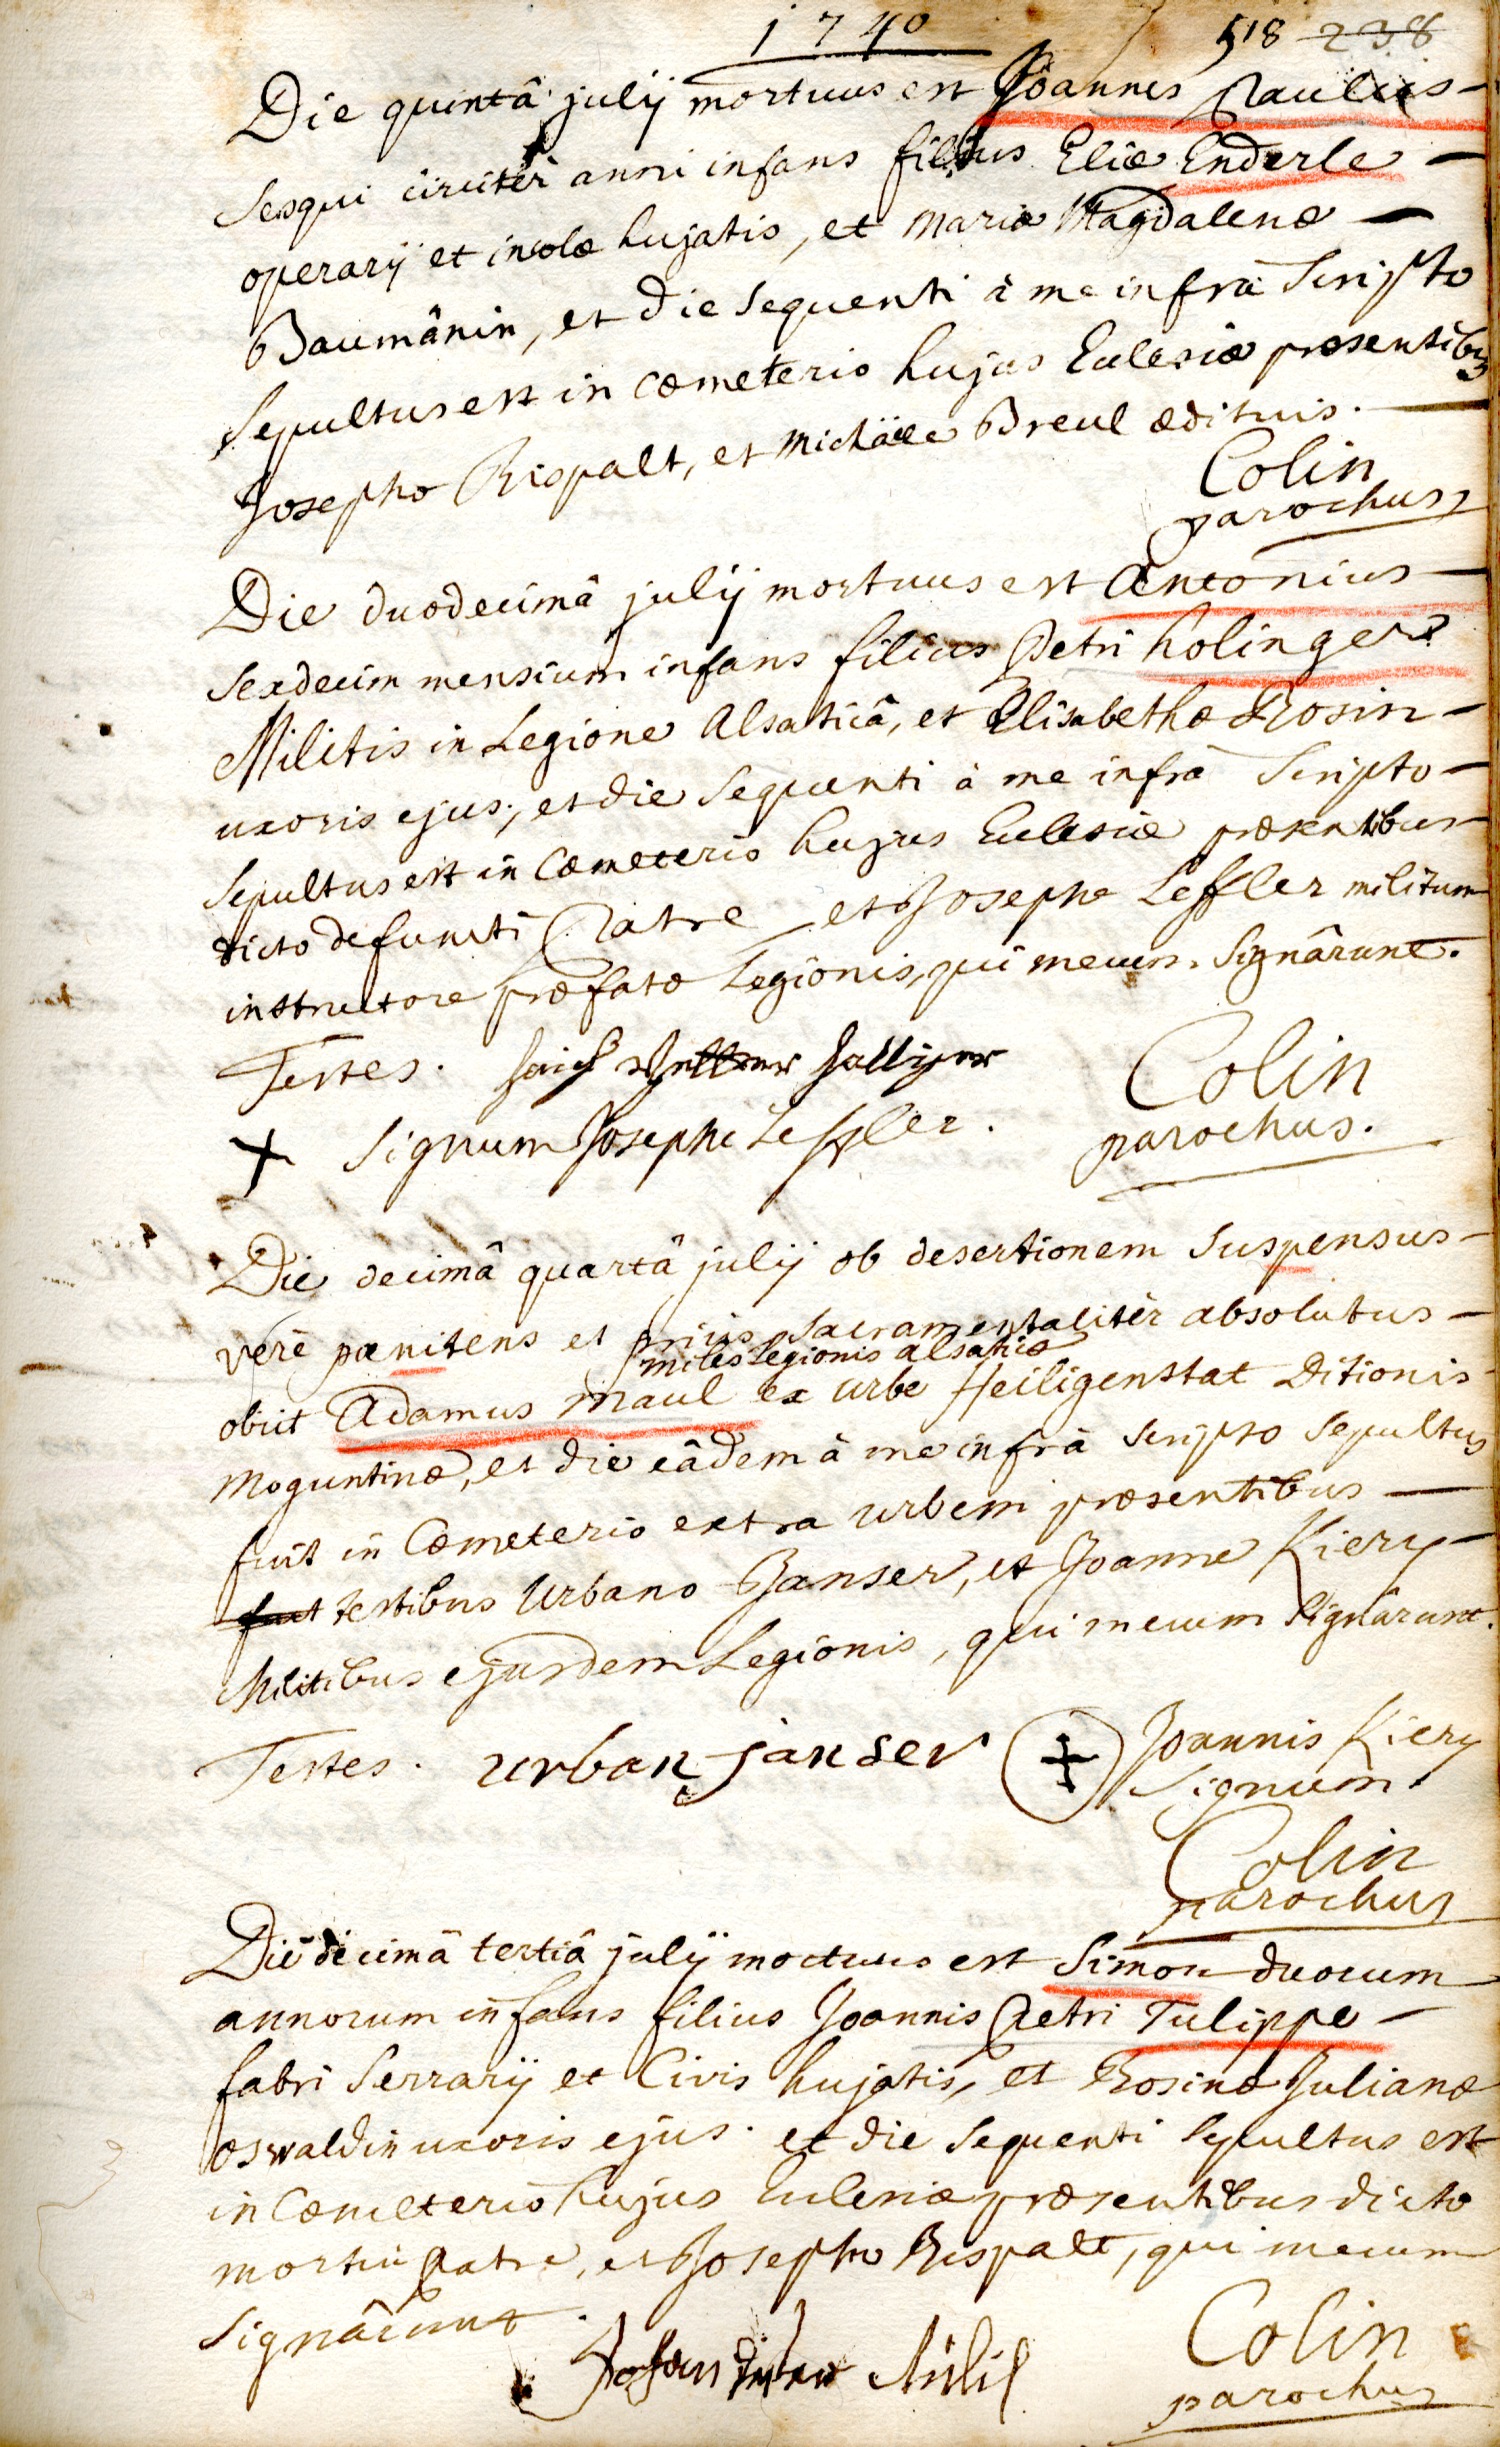 1740 518 238
Die quintâ julij mortuus est Joannes Paulus
sesqui circitèr anni infans filius Eliæ Enderle
operarij et incolæ hujatis, et Mariæ Magdalenæ
Baumânin, et die sequenti à me infrà scripto
sepultus est in cœmeterio hujus Ecclesiæ præsentibus
Josepho Rispalt, et Michäele Breul ædituis.
Colin
parochus
Die duodecimâ julij mortuus est Antonius
sexdecim mensium infans filius Petri holinger
Militis in Legione Alsaticâ, et Elisabethæ Rosin
uxoris ejus, et die sequenti à me infrà scripto
sepultus est in Cœmeterio hujus Ecclesiæ præsentibus
dicto defuncti Patre et Josepho Leffler militum
instructore præfatæ Legionis, qui mecum signârunt.
Testes.
Colin
+ Signum Josephi Leffler.
parochus.
Die decimâ quartâ julij ob desertionem suspensus
verè pœnitens et priùs sacramentalitèr absolutus
miles Legionis alsaticæ
obiit Adamus Maul ex urbe Heiligenstat Ditionis
Moguntinæ, et die eâdem à me infrà scripto sepultus
fuit in Cœmeterio extra urbem præsentibus
fuit testibus Urbano Janser, et Joanne Kiery
Militibus ejusdem Legionis, qui mecum signârunt.
Testes. urban janser + Joannis Kiery
signum.
Colin
parochus
Die decimâ tertiâ julij mortuus est Simon duorum
annorum infans filius Joannis Petri Tulippe
fabri serrarij et Civis hujatis, et Rosinæ Julianæ
oswaldin uxoris ejus. et die sequenti sepultus est
in Cœmeterio hujus Ecclesiæ præsentibus dicto
mortui Patre, et Josepho Rispalt, qui mecum
signârunt.
Colin
parochus